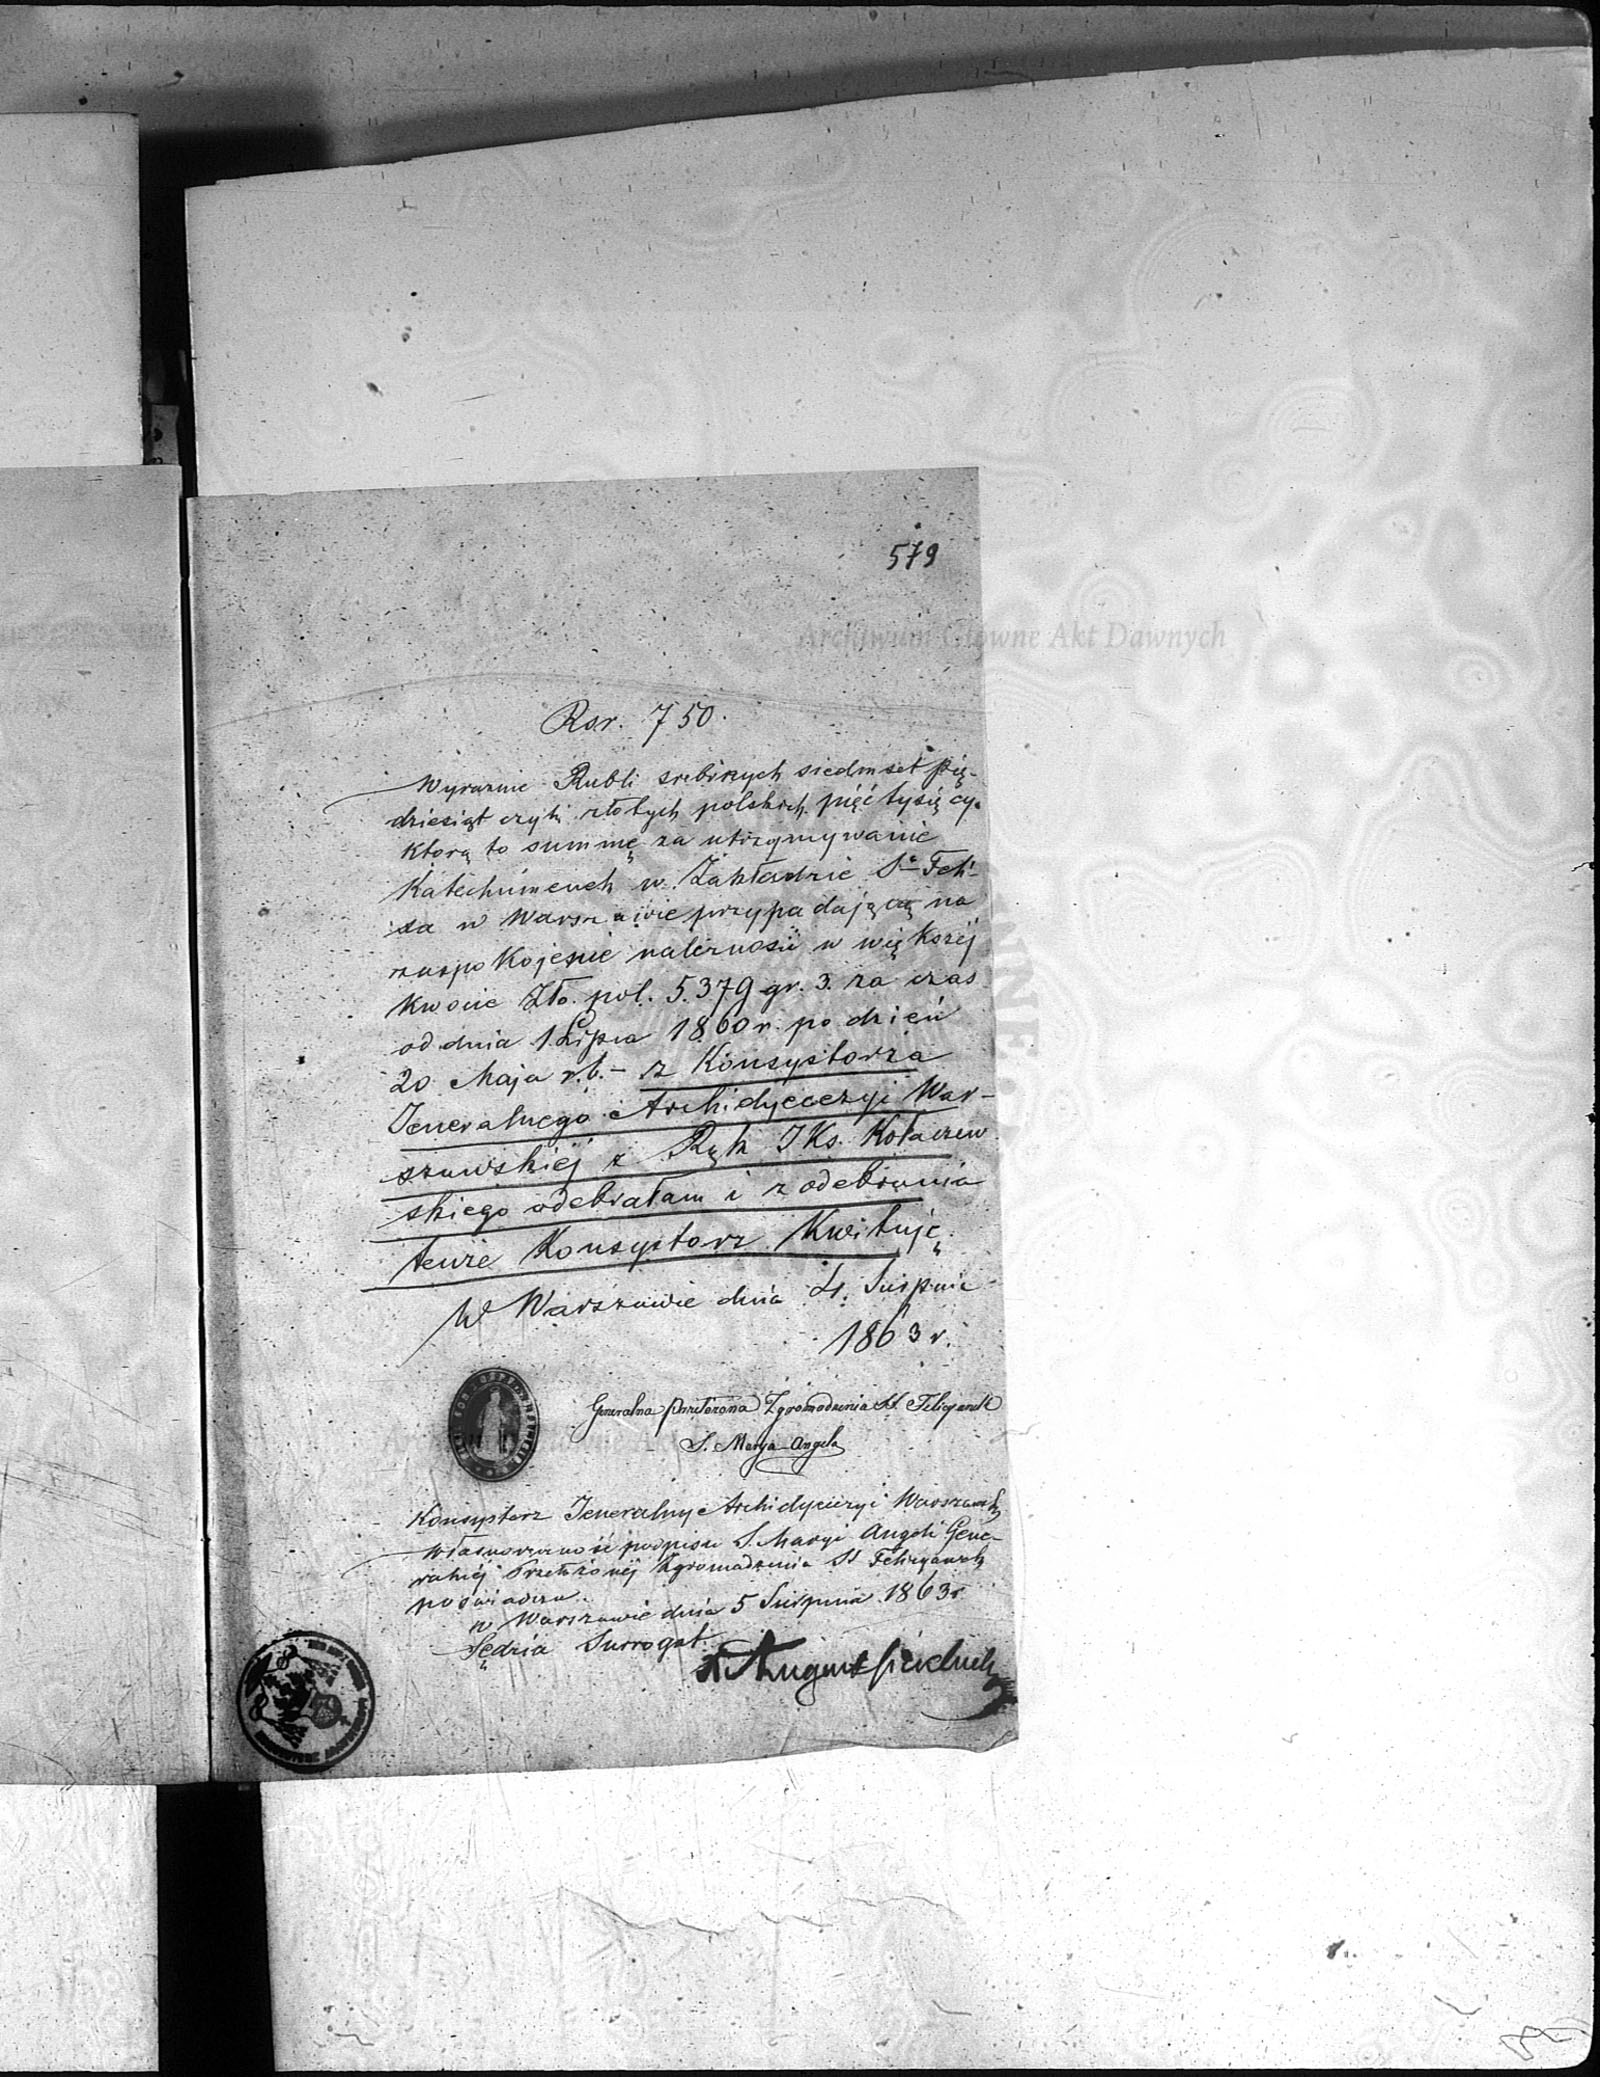 579
Archiwum Główne Akt Dawnych
Rsr. 750.
Wyraznie Rubli srebrnych siedmset pię-
dziesiąt czyli złotych polskich pięć tysięcy.
Którą to summę za utrzymywanie
Katechumenek w Zakładzie Sgo Feli-
xa w Warszawie przypadającą na
zaspokojenie należności w większej
Kwocie Zło. pol. 5.379 gr. 3. za czas
od dnia 1. Lipca 1860 r. po dzień
20 Maja r.b. - z Konsystorza
Jeneralnego Archidyecezyi War-
szawskiéj z Rąk JKs. Kołaczew
skiego odebrałam i z odebrania
tenże Konsystorz Kwituję.
W Warszawie dnia 4. Sierpnia
1863 r.
Generalna Przełożona Zgromadzenia SS. Felicyanek
S. Marya Angela
Konsystorz Jeneralny Archidyecezyi Warszawskiej
własnoręczność podpisu S. Maryi Angeli Gene-
ralnéj Przełożonéj Zgromadzenia SS Felicyanek
poświadcza.
w Warszawie dnia 5 Sierpnia 1863 r
Sędzia Surrogat.
August